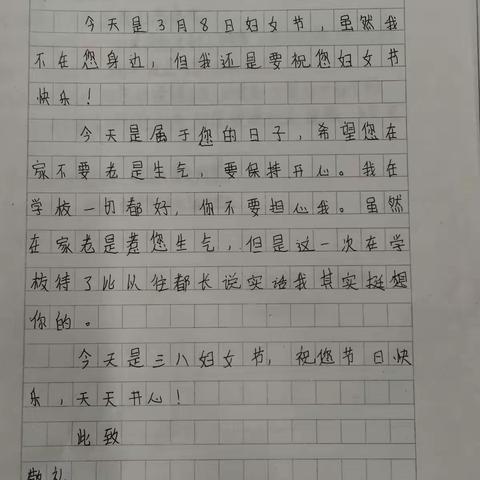 今天是3月8日妇女节，虽然我
不在您身边，但我还是要祝您妇女节
快乐！
今天是属于您的日子，希望您在
家不要老是生气，要保持开心。我在
学校一切都好，你不要担心我。虽然
在家老是惹您生气，但是这一次在学
校待了比以往都长说实话我其实挺想
你的。
今天是三八妇女节，祝您节日快
乐，天天开心！
此致
敬礼